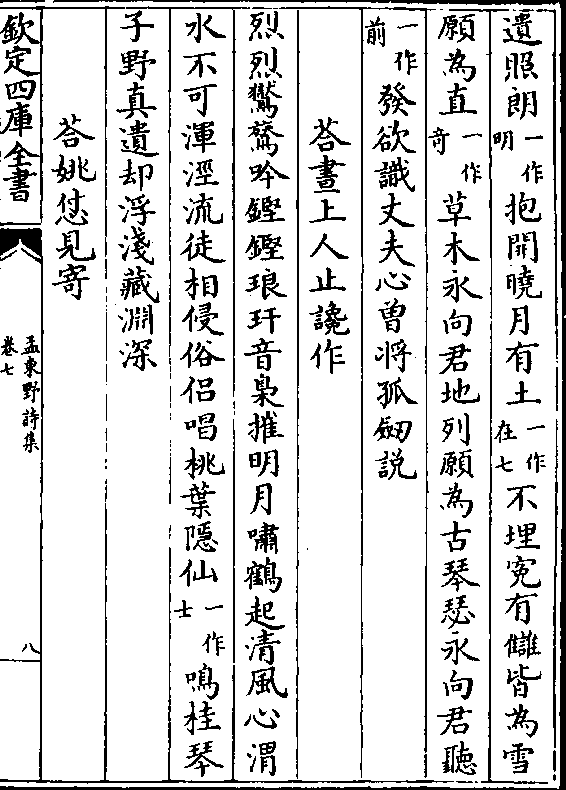 遺照朗一作明抱開曉月有土一作在七不埋寃有讎皆為雪
願為直一作奇草木永向君地列願為古琴瑟永向君聽
一作前發欲識丈夫心曾將孤劒説
荅晝上人止讒作
烈烈鸑鷟吟鏗鏗琅玕音梟摧明月嘯鶴起清風心渭
水不可渾涇流徒相侵俗侣唱桃葉隱仙一作士鳴桂琴
子野真遺却浮淺藏淵深
荅姚怤見寄
欽定四庫全書
孟東野詩集
卷七
八